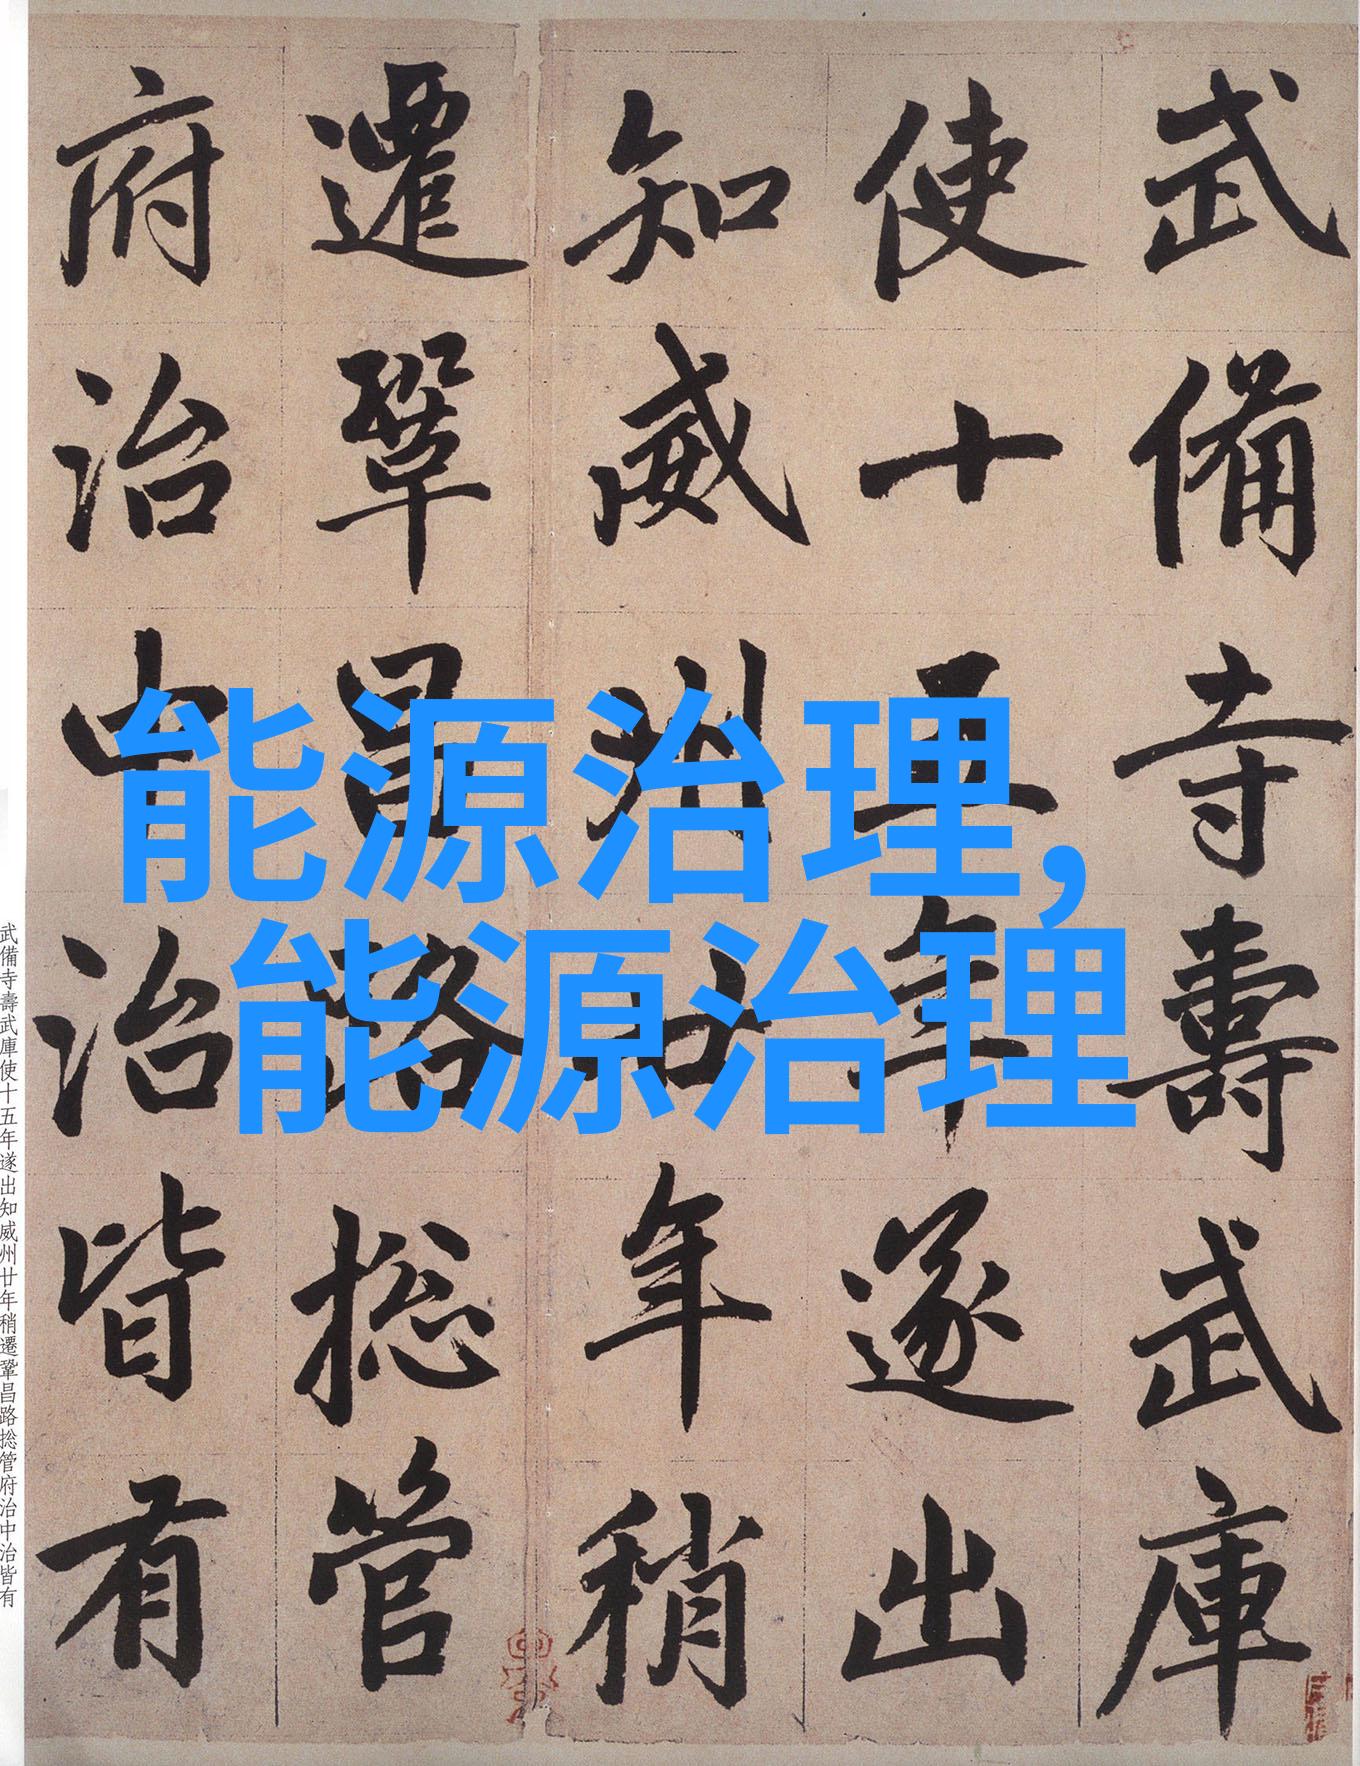 武備寺壽武庫
使十五年遂出
知威州廿年稍
遷鞏昌路捴管
府治中治皆有
能源治理,
能源治理
武備寺壽武庫使十五年遂出知威州廿年稍遷鞏昌路捴管府治中治皆有